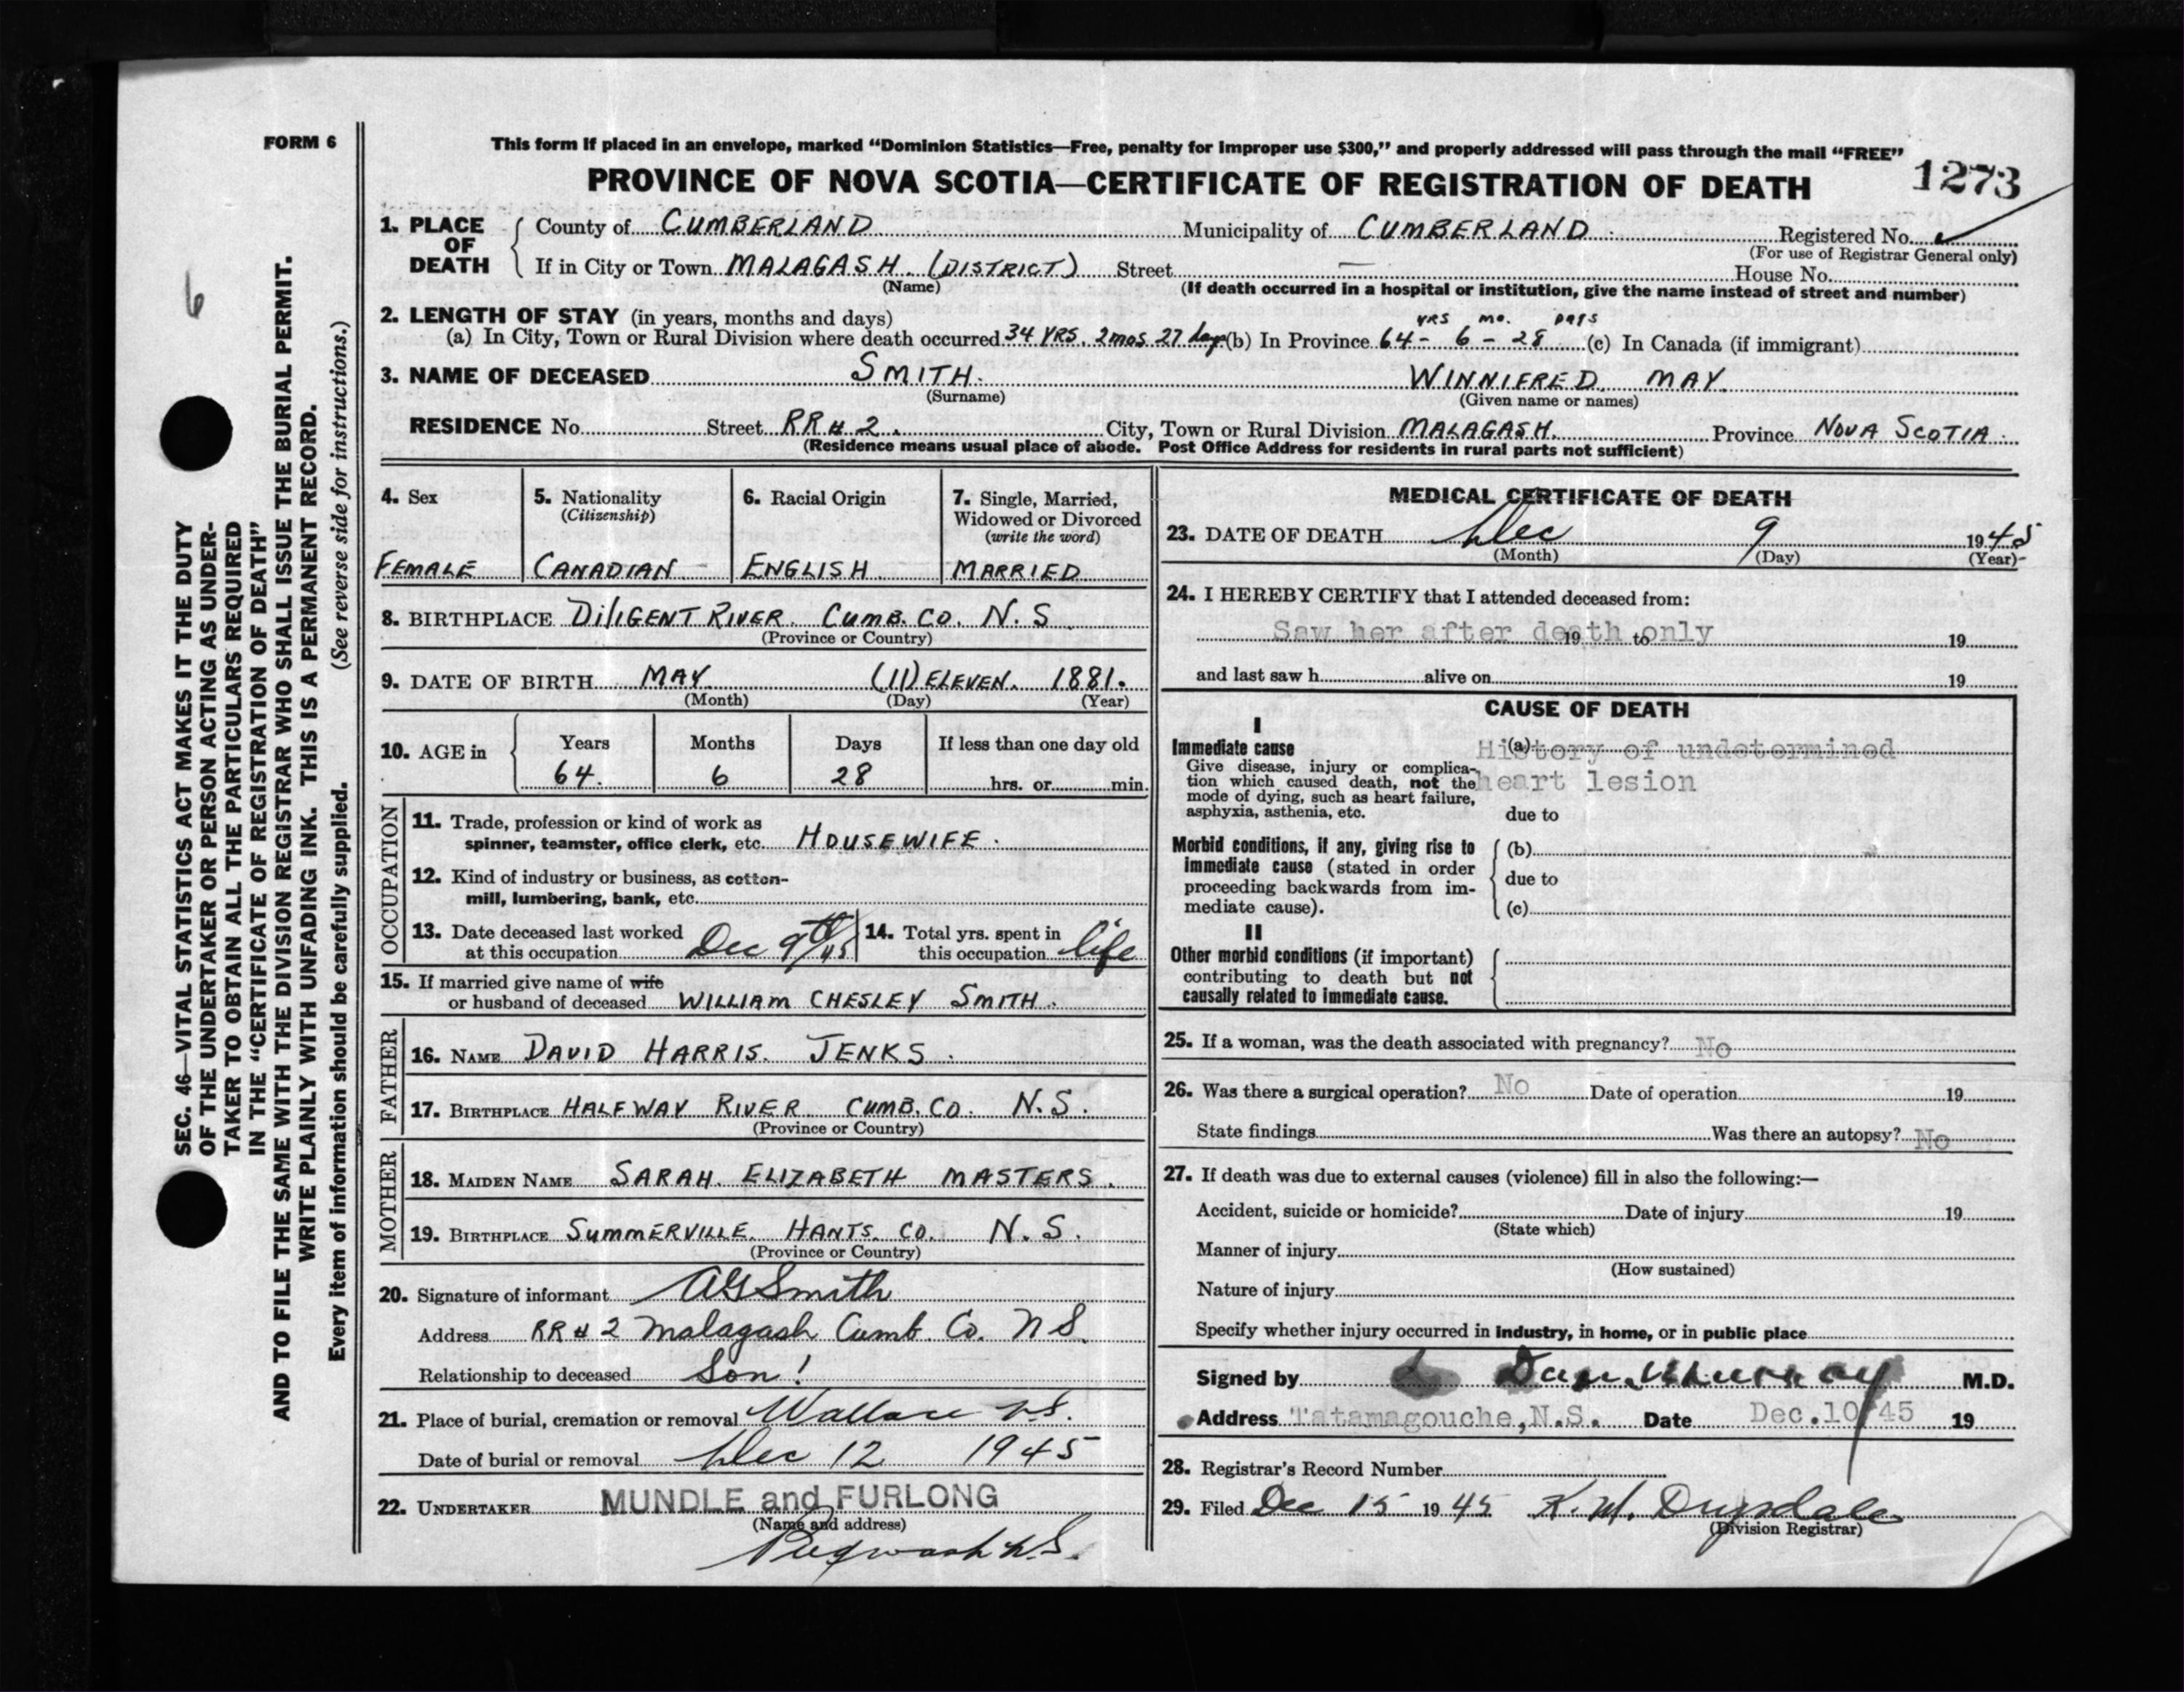 FORM 6
This form if placed in an envelope, marked “Dominion Statistics—Free, penalty for improper use $300,” and properly addressed will pass through the mail “FREE”
PROVINCE OF NOVA SCOTIA—CERTIFICATE OF REGISTRATION OF DEATH
1273
6
SEC. 46—VITAL STATISTICS ACT MAKES IT THE DUTY
OF THE UNDERTAKER OR PERSON ACTING AS UNDER-
TAKER TO OBTAIN ALL THE PARTICULARS REQUIRED
IN THE “CERTIFICATE OF REGISTRATION OF DEATH”
AND TO FILE THE SAME WITH THE DIVISION REGISTRAR WHO SHALL ISSUE THE BURIAL PERMIT.
WRITE PLAINLY WITH UNFADING INK. THIS IS A PERMANENT RECORD.
Every item of information should be carefully supplied. (See reverse side for instructions.)
1. PLACE OF DEATH
County of CUMBERLAND Municipality of CUMBERLAND Registered No.
(For use of Registrar General only)
If in City or Town MALAGASH. (DISTRICT) Street — House No.
(Name) (If death occurred in a hospital or institution, give the name instead of street and number)
2. LENGTH OF STAY (in years, months and days)
yrs mo. days
(a) In City, Town or Rural Division where death occurred 34 YRS. 2 mos 27 days (b) In Province 64 - 6 - 28 (c) In Canada (if immigrant)
3. NAME OF DECEASED SMITH. WINNIFRED MAY.
(Surname) (Given name or names)
RESIDENCE No. Street RR # 2. City, Town or Rural Division MALAGASH. Province NOVA SCOTIA.
(Residence means usual place of abode. Post Office Address for residents in rural parts not sufficient)
4. Sex
FEMALE
5. Nationality
(Citizenship)
CANADIAN
6. Racial Origin
ENGLISH
7. Single, Married,
Widowed or Divorced
(write the word)
MARRIED
8. BIRTHPLACE DILIGENT RIVER. CUMB. CO. N. S
(Province or Country)
9. DATE OF BIRTH MAY (11) ELEVEN. 1881.
(Month) (Day) (Year)
10. AGE in
Years Months Days If less than one day old
64. 6 28 hrs. or min.
OCCUPATION
11. Trade, profession or kind of work as
spinner, teamster, office clerk, etc. HOUSEWIFE.
12. Kind of industry or business, as cotton-
mill, lumbering, bank, etc.
13. Date deceased last worked
at this occupation Dec 9th/45
14. Total yrs. spent in
this occupation life
15. If married give name of wife
or husband of deceased WILLIAM CHESLEY SMITH.
FATHER
16. NAME DAVID HARRIS. JENKS.
17. BIRTHPLACE HALFWAY RIVER CUMB. CO. N.S.
(Province or Country)
MOTHER
18. MAIDEN NAME SARAH. ELIZABETH MASTERS.
19. BIRTHPLACE SUMMERVILLE. HANTS. CO. N.S.
(Province or Country)
20. Signature of informant AG Smith
Address RR # 2 Malagash Cumb. Co. N S.
Relationship to deceased Son!
21. Place of burial, cremation or removal Wallace N.S.
Date of burial or removal Dec 12 1945
22. UNDERTAKER MUNDLE and FURLONG
(Name and address)
Pugwash N.S.
MEDICAL CERTIFICATE OF DEATH
23. DATE OF DEATH Dec 9 1945
(Month) (Day) (Year)
24. I HEREBY CERTIFY that I attended deceased from:
Saw her after death only 19 to 19
and last saw h alive on 19
CAUSE OF DEATH
I
Immediate cause
Give disease, injury or complica-
tion which caused death, not the
mode of dying, such as heart failure,
asphyxia, asthenia, etc.
(a) History of undetermined
heart lesion
due to
Morbid conditions, if any, giving rise to
immediate cause (stated in order
proceeding backwards from im-
mediate cause).
(b)
due to
(c)
II
Other morbid conditions (if important)
contributing to death but not
causally related to immediate cause.
25. If a woman, was the death associated with pregnancy? No
26. Was there a surgical operation? No Date of operation 19
State findings Was there an autopsy? No
27. If death was due to external causes (violence) fill in also the following:—
Accident, suicide or homicide? Date of injury 19
(State which)
Manner of injury
(How sustained)
Nature of injury
Specify whether injury occurred in industry, in home, or in public place
Signed by Dan Murray M.D.
Address Tatamagouche, N.S. Date Dec. 10/45 19
28. Registrar's Record Number
29. Filed Dec 15 1945 K. M. Drysdale
(Division Registrar)